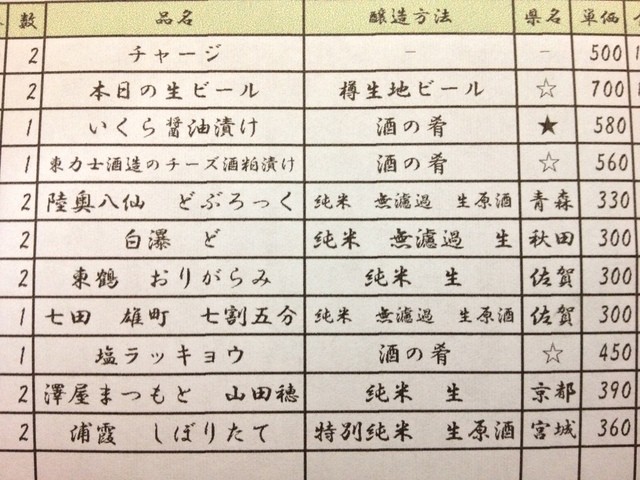 数 品名 醸造方法 県名 単価
2 チャージ － － 500
2 本日の生ビール 樽生地ビール ☆ 700
1 いくら醤油漬け 酒の肴 ★ 580
1 東力士酒造のチーズ酒粕漬け 酒の肴 ☆ 560
2 陸奥八仙 どぶろっく 純米 無濾過 生原酒 青森 330
2 白瀑 ど 純米 無濾過 生 秋田 300
2 東鶴 おりがらみ 純米 生 佐賀 300
1 七田 雄町 七割五分 純米 無濾過 生原酒 佐賀 300
1 塩ラッキョウ 酒の肴 ☆ 450
2 澤屋まつもと 山田穂 純米 生 京都 390
2 浦霞 しぼりたて 特別純米 生原酒 宮城 360